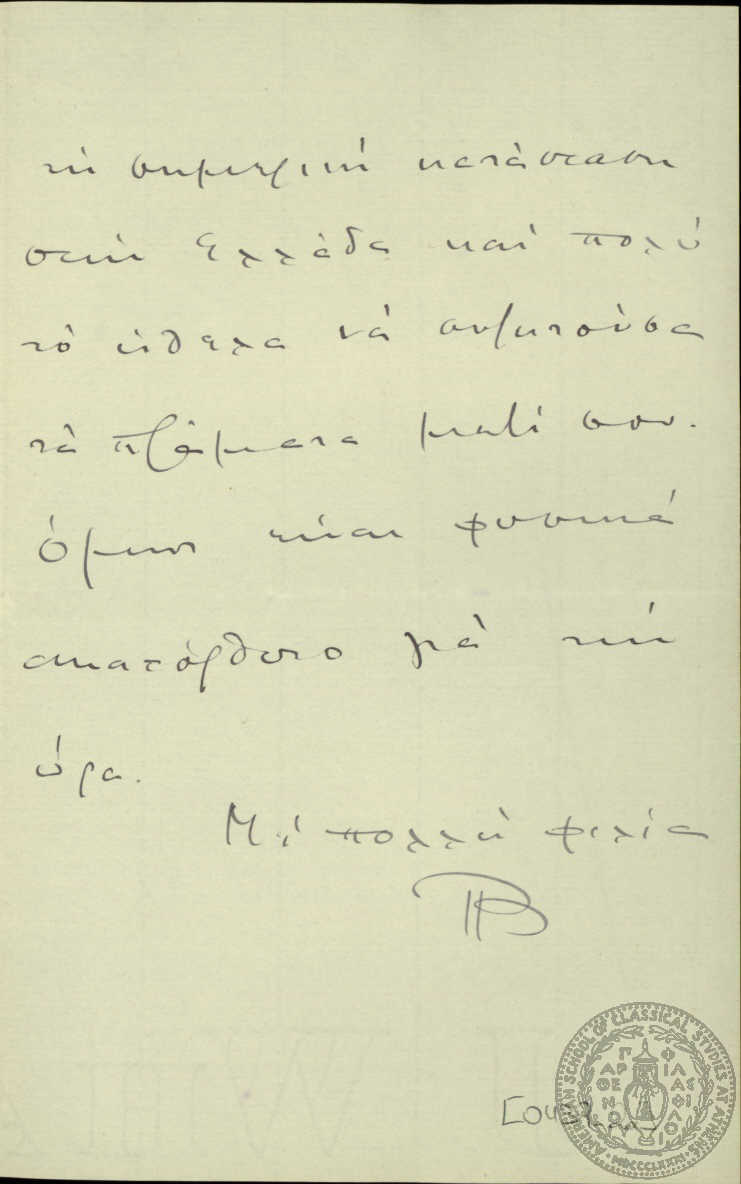 τὴ σημερινὴ κατάσταση
στὴν Ἑλλάδα καὶ πολὺ
τὸ ἤθελα νὰ συζητοῦσα
τὰ πράματα μαζί σου.
Ὅμως εἶναι φυσικὰ
ἀκατόρθωτο γιὰ τὴν
ὥρα.
Μὲ πολλὴ φιλία
ΠΒ
AMERICAN SCHOOL OF CLASSICAL STUDIES AT ATHENS
ΠΑΡΘΕΝΟΦΙΛΑΣΦΙΛΟ
MDCCCLXXXI